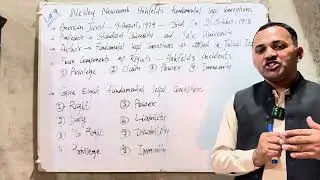 Wesley Newcomb Hohfeld's fundamental legal conceptions
American Jurist
Professor = Standford University and Yale University
Author = Fundamental legal conceptions as
Four components of Rights = Hohfeld's incidents
① Privilege ② Claim ③ Power ④ Immunity
Eight Fundamental legal conceptions
① Right ⑤ Power
② Duty ⑥ Liability
③ No Right ⑦ Disability
④ Privilege ⑧ Immunity